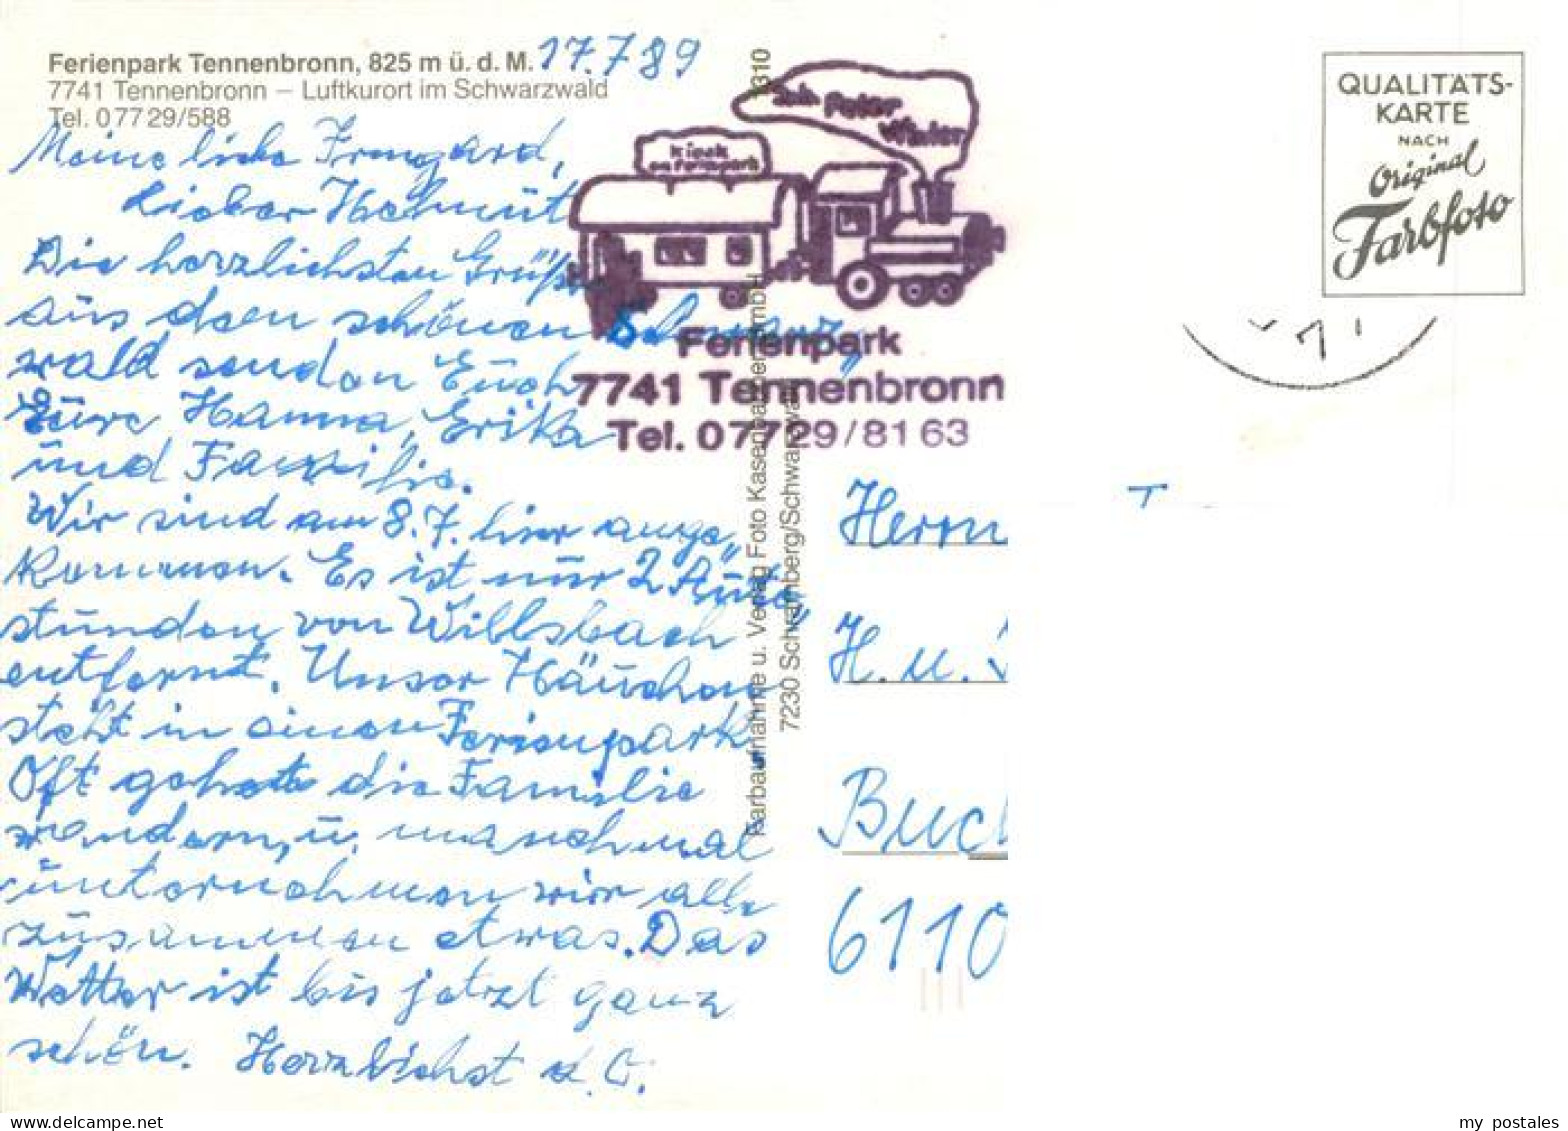 Ferienpark Tennenbronn, 825 m ü. d. M. 17.7.89
7741 Tennenbronn – Luftkurort im Schwarzwald
Tel. 07729/588
Meine liebe Irmgard,
Lieber Helmut
Die herzlichsten Grüße
aus dem schönen Schwarz„
wald senden Euch
Eure Hanna, Erika
und Familie.
Wir sind am 8.7. hier ange„
kommen. Es ist nur 2 Auto„
stunden von Willsbach
entfernt. Unser Häuschen
steht in einen Ferienpark.
Oft gehen die Familie
wandern, u. manchmal
unternehmen wir alle
zusammen etwas. Das
Wetter ist bis jetzt ganz
schön. Herzlichst d. O.
Kiosk
am Ferienpark
Peter
Winter
Ferienpark
7741 Tennenbronn
Tel. 07729/8163
Farbaufnahme u. Verlag Foto Kasenbacher GmbH
7230 Schramberg/Schwarzwald
QUALITÄTS-
KARTE
NACH
Original
Farbfoto
Herrn
H. u.
Buch
6110
my postales